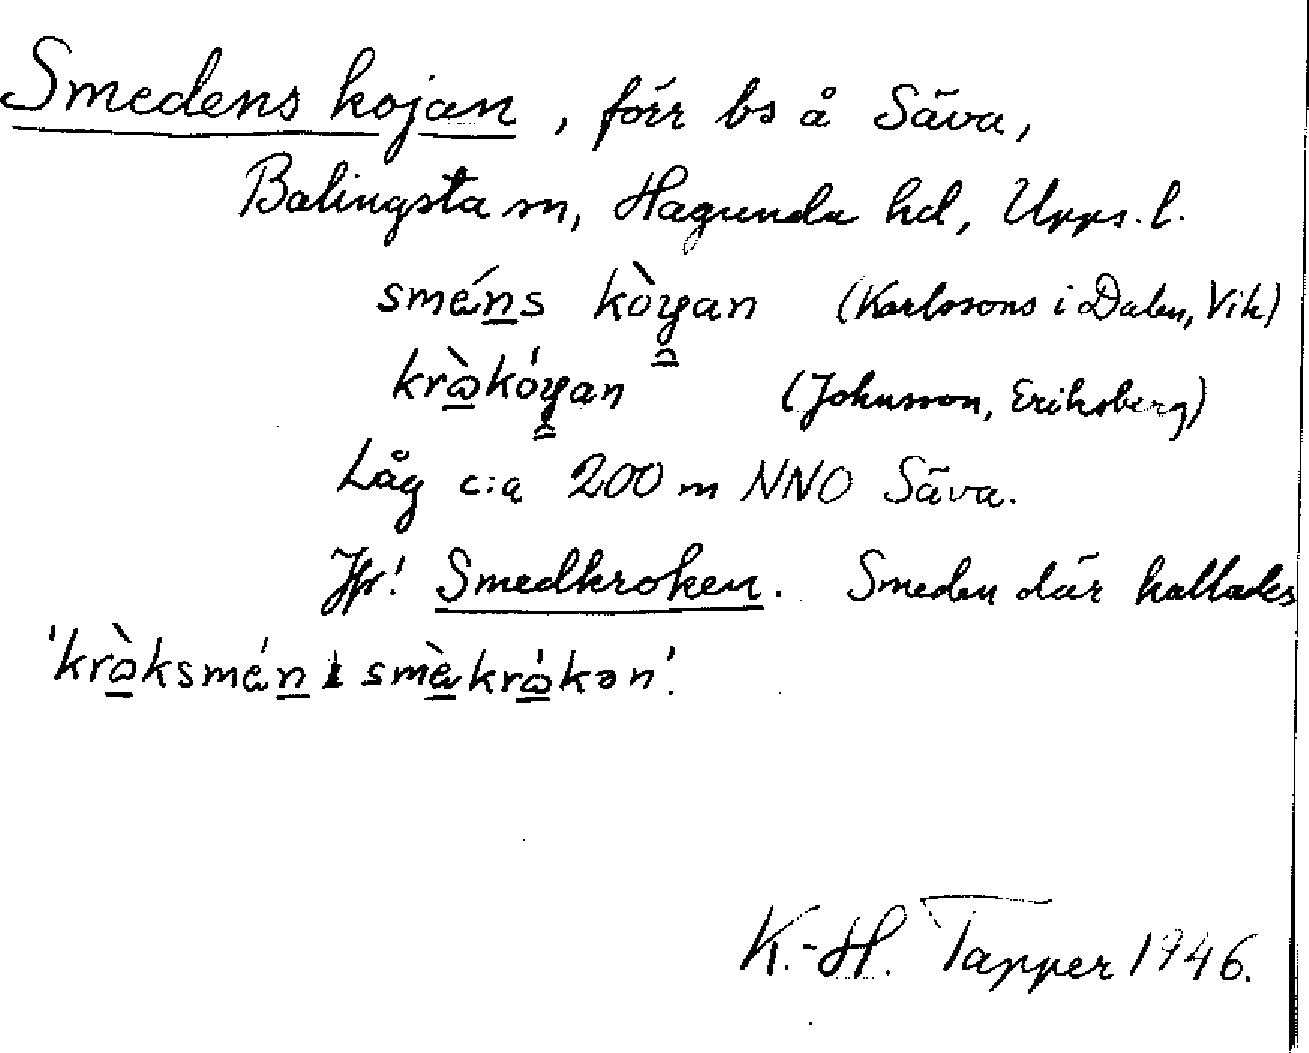 Smedens kojan, förr bs å Säva,
Balingsta sn, Hagunda hd, Upps. l.
sméns kòyan (Karlssons i Dalen, Vik)
kràkóyan (Johnsson, Eriksberg)
Låg c:a 200 m NNO Säva.
Jfr! Smedkroken. Smeden där kallades
'kròksmén i smèkrókən'.
K.-H. Tapper 1946.